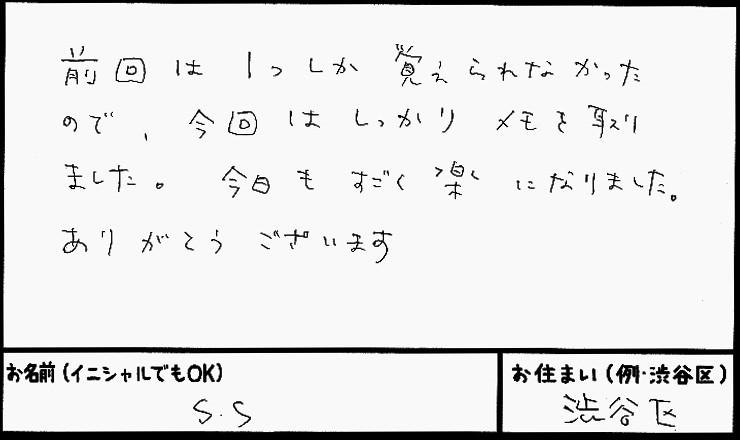 前回は1つしか覚えられなかった
ので、今回はしっかりメモを取り
ました。今日もすごく楽になりました。
ありがとうございます
お名前(イニシャルでもOK)
S.S
お住まい(例・渋谷区)
渋谷区